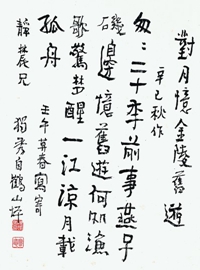 對月憶金陵舊遊
辛巳秋作
匆〻二十季前事燕子
磯邊憶舊遊何処漁
歌驚梦醒一江涼月載
孤舟
壬午暮春寫寄
靜農兄
獨秀自鶴山坪